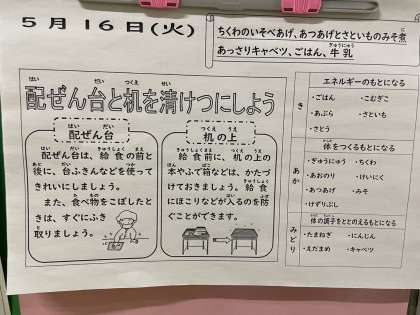 5月16日(火)
ちくわのいそべあげ、あつあげとさといものみそ煮
あっさりキャベツ、ごはん、牛乳
配ぜん台と机を清けつにしよう
配ぜん台
配ぜん台は、給食の前と
後に、台ふきんなどを使って
きれいにしましょう。
また、食べ物をこぼしたと
きは、すぐにふき
取りましょう。
机の上
給食前に、机の上の
本やふで箱などは、かたづ
けておきましょう。給食
にほこりなどが入るのを防
ぐことができます。
き
エネルギーのもとになる
・ごはん ・こむぎこ
・あぶら ・さといも
・さとう
あか
体をつくるもとになる
・ぎゅうにゅう ・ちくわ
・あおのり ・けいにく
・あつあげ ・みそ
・けずりぶし
みどり
体の調子をととのえるもとになる
・たまねぎ ・にんじん
・えだまめ ・キャベツ